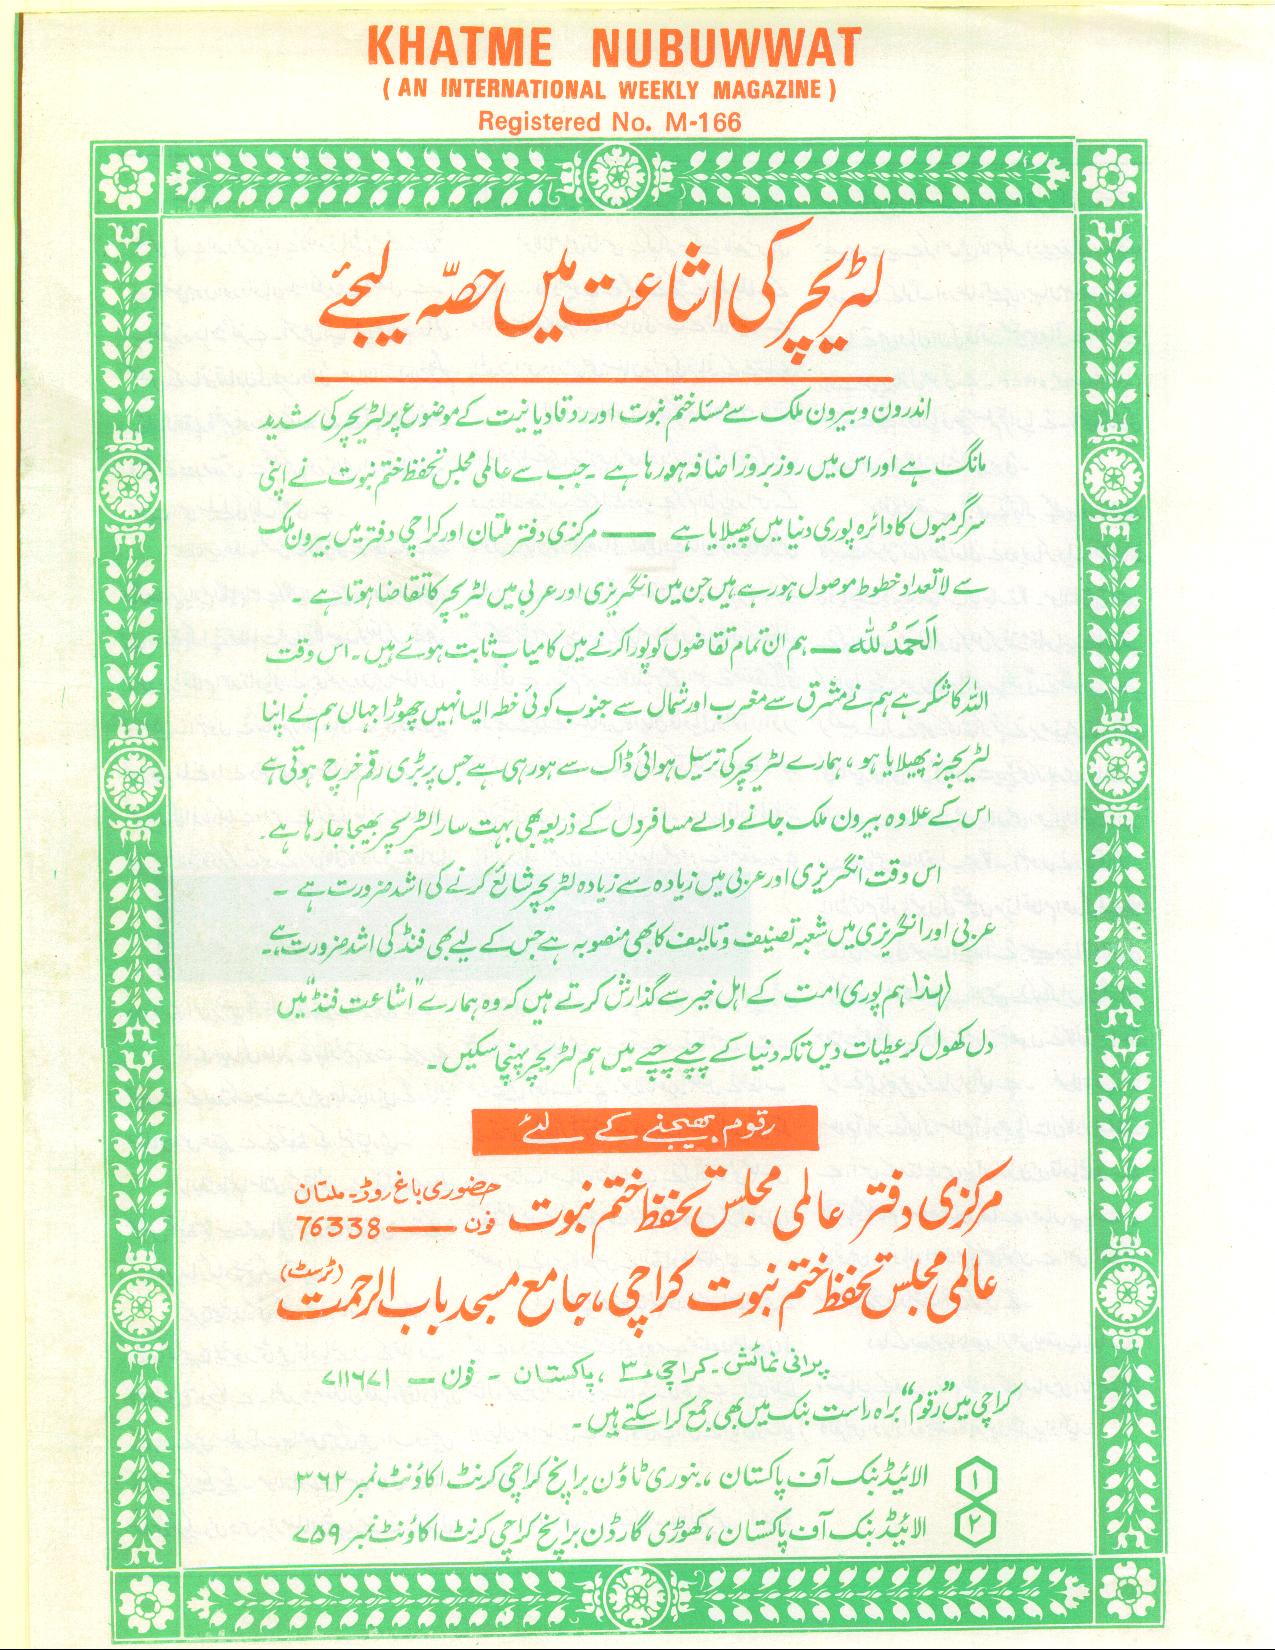 KHATME NUBUWWAT
( AN INTERNATIONAL WEEKLY MAGAZINE )
Registered No. M-166
لٹریچر کی اشاعت میں حصّہ لیجئے
اندرون و بیرون ملک سے مسئلہ ختم نبوت اور رد قادیانیت کے موضوع پر لٹریچر کی شدید
مانگ ہے اور اس میں روز بروز اضافہ ہو رہا ہے ۔ جب سے عالمی مجلس تحفظ ختم نبوت نے اپنی
سرگرمیوں کا دائرہ پوری دنیا میں پھیلایا ہے ــــ مرکزی دفتر ملتان اور کراچی دفتر میں بیرون ملک
سے لاتعداد خطوط موصول ہو رہے ہیں جن میں انگریزی اور عربی میں لٹریچر کا تقاضا ہوتا ہے
اَلحَمدُ للّٰہ ــ ہم ان تمام تقاضوں کو پورا کرنے میں کامیاب ثابت ہوئے ہیں ۔ اس وقت
اللہ کا شکر ہے ہم نے مشرق سے مغرب اور شمال سے جنوب کوئی خطہ ایسا نہیں چھوڑا جہاں ہم نے اپنا
لٹریچر نہ پھیلایا ہو ، ہمارے لٹریچر کی ترسیل ہوائی ڈاک سے ہو رہی ہے جس پر بڑی رقم خرچ ہوتی ہے
اس کے علاوہ بیرون ملک جانے والے مسافروں کے ذریعہ بھی بہت سارا لٹریچر بھیجا جا رہا ہے ۔
اس وقت انگریزی اور عربی میں زیادہ سے زیادہ لٹریچر شائع کرنے کی اشد ضرورت ہے ۔
عربی اور انگریزی میں شعبہ تصنیف و تالیف کا بھی منصوبہ ہے جس کے لیے بھی فنڈ کی اشد ضرورت ہے ۔
لہٰذا ہم پوری امت کے اہل خیر سے گذارش کرتے ہیں کہ وہ ہمارے "اشاعت فنڈ" میں
دل کھول کر عطیات دیں تاکہ دنیا کے چپے چپے میں ہم لٹریچر پہنچا سکیں ۔
رقوم بھیجنے کے لئے
مرکزی دفتر عالمی مجلس تحفظ ختم نبوت حضوری باغ روڈ ۔ ملتان
فون ــــ 76338
عالمی مجلس تحفظ ختم نبوت کراچی ، جامع مسجد باب الرحمت (ٹرسٹ)
پرانی نمائش ۔ کراچی ۳ ، پاکستان ۔ فون ــ ۷۱۱۶۷۱
کراچی میں "رقوم" براہ راست بنک میں بھی جمع کرا سکتے ہیں ۔
۱ الائیڈ بنک آف پاکستان ، بنوری ٹاؤن برانچ کراچی کرنٹ اکاؤنٹ نمبر ۳۶۲
۲ الائیڈ بنک آف پاکستان ، کھوڑی گارڈن برانچ کراچی کرنٹ اکاؤنٹ نمبر ۷۵۹